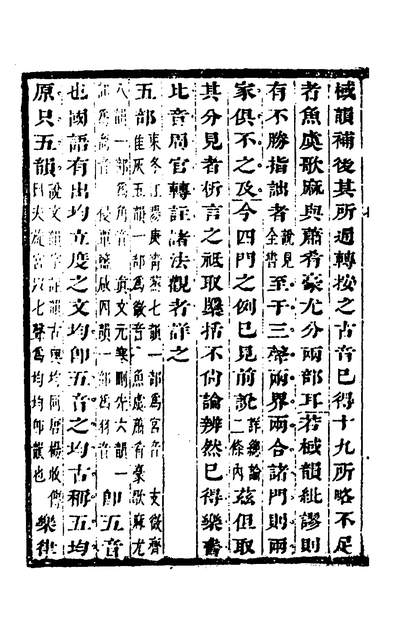 棫韻補後其所通轉按之古音已得十九所略不足
者魚虞歌麻與蕭肴豪尤分兩部耳若棫韻紕謬則
有不勝指詘者說見全書至于三聲兩界兩合諸門則兩
家俱不之及今四門之例已見前說詳總論二條內茲但取
其分見者析言之祗取檃括不尙論辨然已得樂書
比音周官轉註諸法觀者詳之
五部東冬江陽庚青蒸七韻一部爲宮音支微齊佳灰五韻一部爲徵音魚虞蕭肴豪歌麻尤
八韻一部爲角音眞文元寒刪先六韻一部爲商音侵覃鹽咸四韻一部爲羽音卽五音
也國語有出均立度之文均卽五音之均古稱五均
原只五韻說文韻字註韻古與均同唐楊收傳曰夫旋宮以七聲爲均均卽韻也樂律